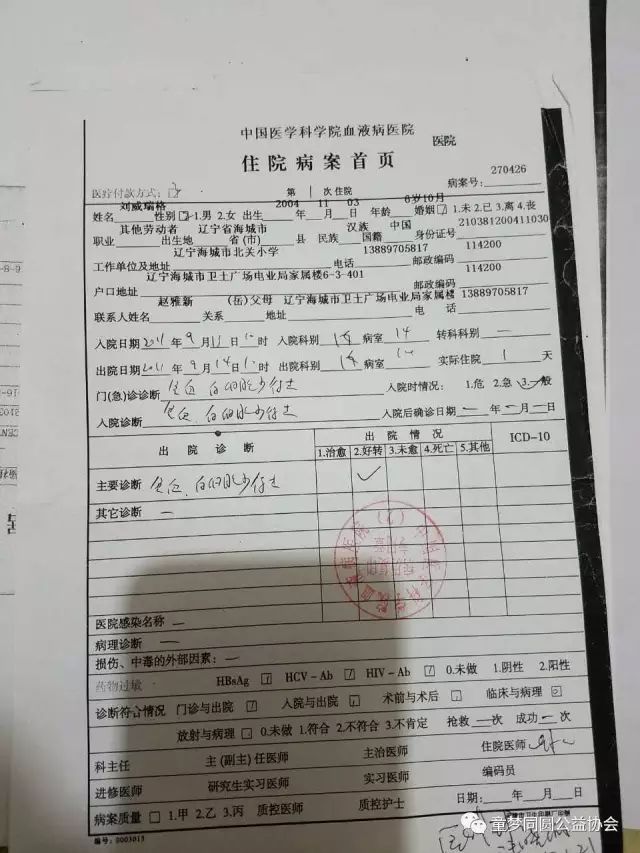 中国医学科学院血液病医院 医院
住院病案首页
医疗付款方式: 第 1 次住院 病案号: 270426
刘威瑞格 2004 11 03 6岁10月
姓名 性别 1.男 2.女 出生 年 月 日 年龄 婚姻 1.未 2.已 3.离 4.丧
其他劳动者 辽宁省海城市 汉族 中国 210381200411030
职业 出生地 省(市) 县 民族 国籍 身份证号
辽宁海城市北关小学 13889705817 114200
工作单位及地址 电话 邮政编码
辽宁海城市卫士广场电业局家属楼6-3-401 114200
户口地址 邮政编码
赵雅新 (岳)父母 辽宁海城市卫士广场电业局家属楼 13889705817
联系人姓名 关系 地址 电话
入院日期 2011 年 9 月 13 日 时 入院科别 病室 14 转科科别 一
出院日期 2011 年 9 月 14 日 时 出院科别 病室 14 实际住院 1 天
门(急)诊诊断 入院时情况: 1.危 2.急 3.一般
入院诊断 入院后确诊日期 一 年 一 月 一 日
出院诊断 出院情况 ICD-10
1.治愈 2.好转 3.未愈 4.死亡 5.其他
主要诊断 ✓
其它诊断 一
医院感染名称 一
病理诊断 一
损伤、中毒的外部因素: 一
药物过敏 HBsAg HCV-Ab HIV-Ab 0.未做 1.阴性 2.阳性
诊断符合情况 门诊与出院 入院与出院 术前与术后 临床与病理
放射与病理 0.未做 1.符合 2.不符合 3.不肯定 抢救 一 次 成功 一 次
科主任 主(副主)任医师 主治医师 住院医师
进修医师 研究生实习医师 实习医师 编码员
病案质量 1.甲 2.乙 3.丙 质控医师 质控护士 日期: 年 月 日
编号: 0003015
童梦同圆公益协会